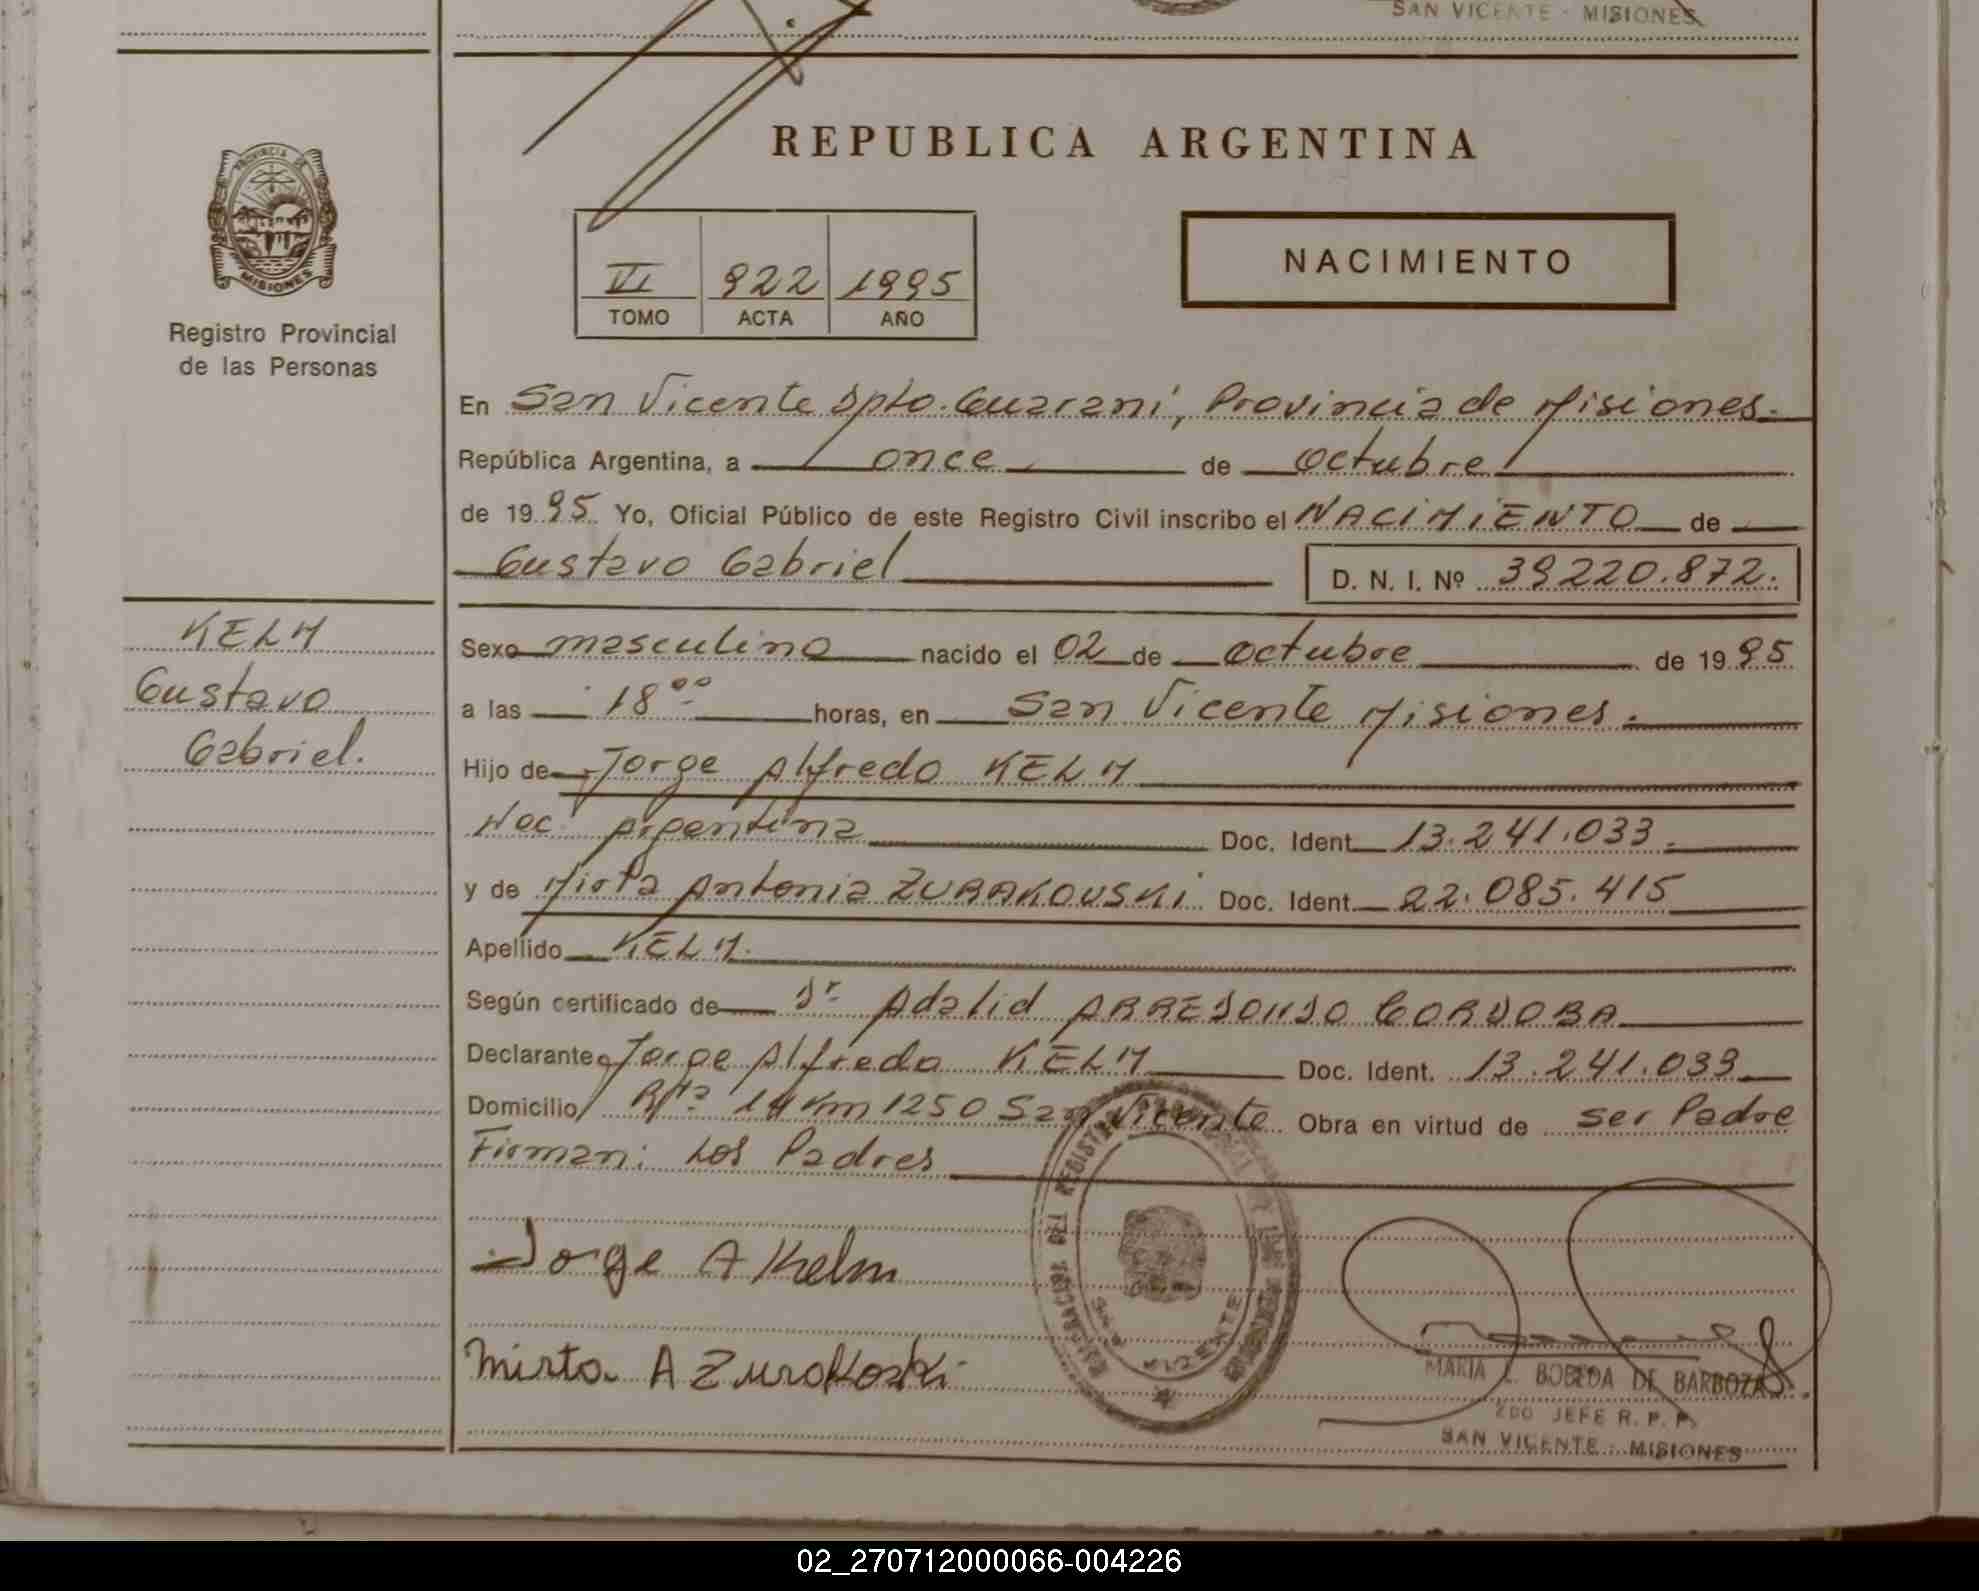 SAN VICENTE - MISIONES
REPUBLICA ARGENTINA
PROVINCIA DE
MISIONES
Registro Provincial
de las Personas
VI 922 1995
TOMO ACTA AÑO
NACIMIENTO
En San Vicente Dpto. Guaraní, Provincia de Misiones.
República Argentina, a once de octubre
de 1995 Yo, Oficial Público de este Registro Civil inscribo el NACIMIENTO de
Gustavo Gabriel D. N. I. Nº 39220.872.
KELM
Gustavo
Gabriel.
Sexo masculino nacido el 02 de octubre de 1995
a las 18 00 horas, en San Vicente Misiones.
Hijo de Jorge Alfredo KELM
Nac. Argentina Doc. Ident. 13.241.033.
y de Mirta Antonia ZURAKOUSKI Doc. Ident. 22.085.415
Apellido KELM.
Según certificado de Dr Adalid ARREDONDO CORDOBA
Declarante Jorge Alfredo KELM Doc. Ident. 13.241.033
Domicilio Rta 14 Km 1250 San Vicente Obra en virtud de ser Padre
Firman: Los Padres
Jorge A Kelm
Mirta A Zurakoski
MARIA L. BOBEDA DE BARBOZA
2DO JEFE R. P. P.
SAN VICENTE - MISIONES
02_270712000066-004226